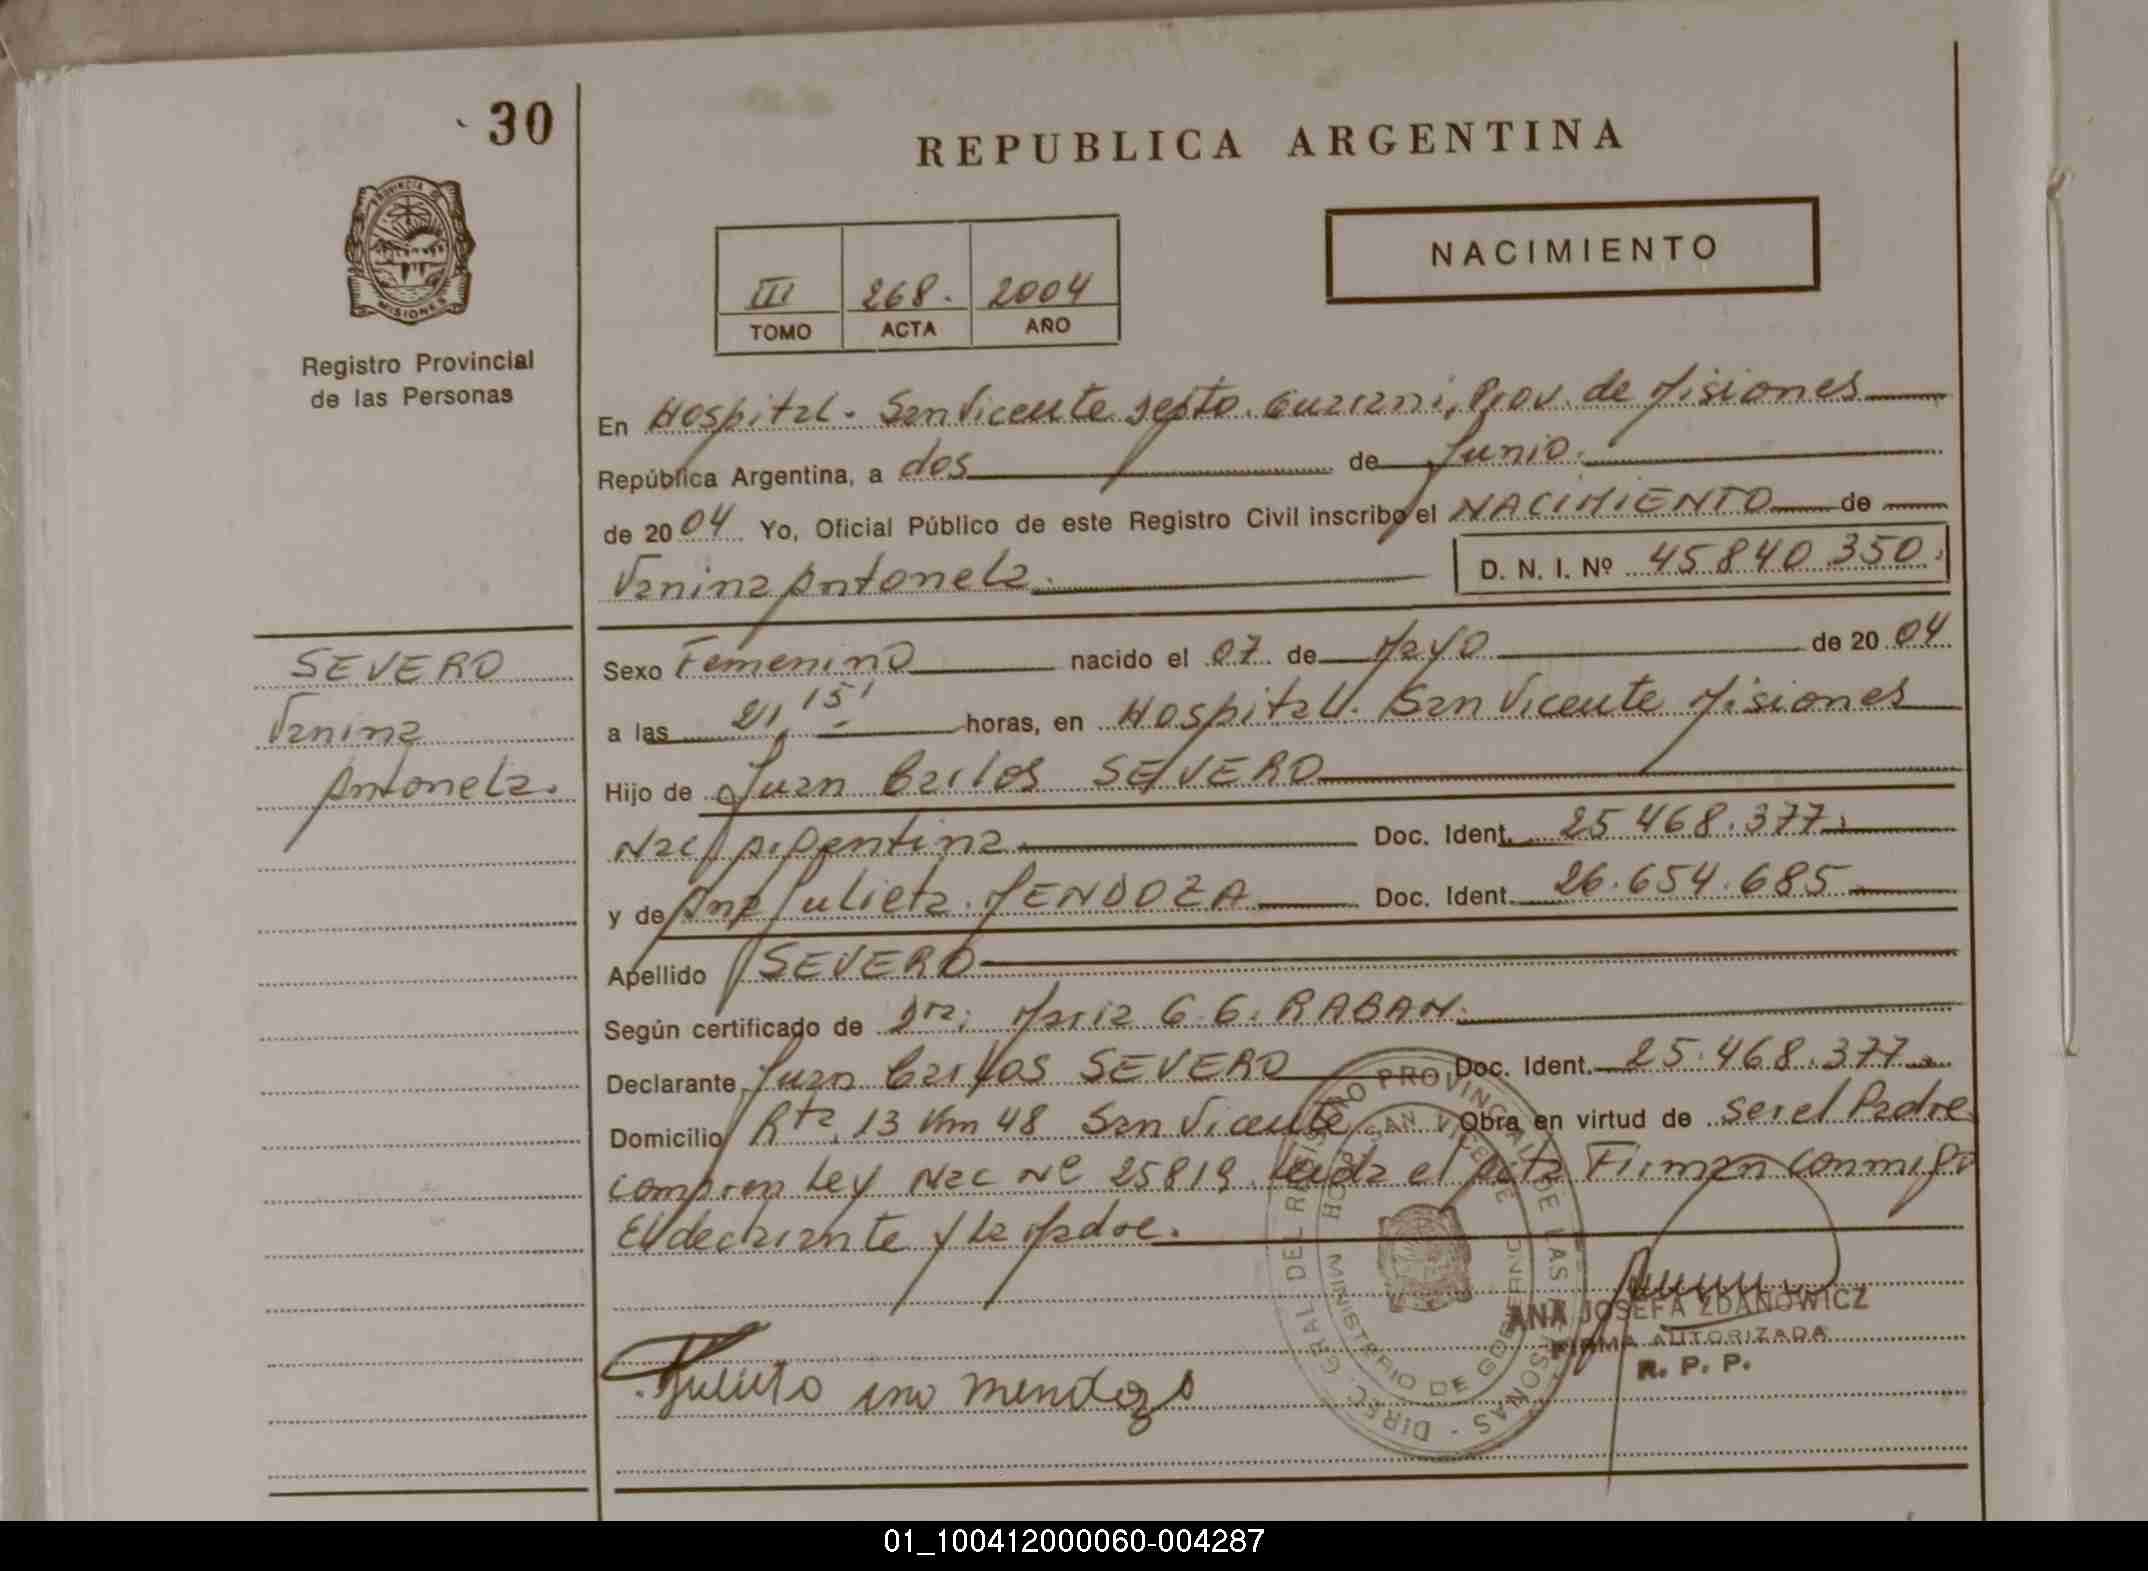 30
REPUBLICA ARGENTINA
PROVINCIA DE
MISIONES
Registro Provincial
de las Personas
III 268. 2004
TOMO ACTA AÑO
NACIMIENTO
En Hospital. San Vicente Depto. Guarani, Prov. de Misiones
República Argentina, a dos de Junio.
de 2004 Yo, Oficial Público de este Registro Civil inscribo el NACIMIENTO de
Vanina Antonela. D. N. I. Nº 45840350.
SEVERO
Vanina
Antonela.
Sexo Femenino nacido el 07 de Mayo de 2004
a las 21,15' horas, en Hospital. San Vicente Misiones
Hijo de Juan Carlos SEVERO
Nac. Argentina Doc. Ident. 25.468.377.
y de Ana Julieta MENDOZA Doc. Ident. 26.654.685
Apellido SEVERO
Según certificado de Dra; Maria G.G. RABAN.
Declarante Juan Carlos SEVERO Doc. Ident. 25.468.377
Domicilio Rta. 13 Km 48 San Vicente Obra en virtud de ser el Padre
Ley Nac Nº 25819. Leida el acta Firman conmigo
El declarante y la Madre.
DIREC. GRAL. DEL REGISTRO PROVINCIAL DE LAS PERSONAS
SAN VICENTE
MINISTERIO DE GOBIERNO
ANA JOSEFA ZDANOWICZ
FIRMA AUTORIZADA
R. P. P.
Julieta Ana Mendoza
01_100412000060-004287